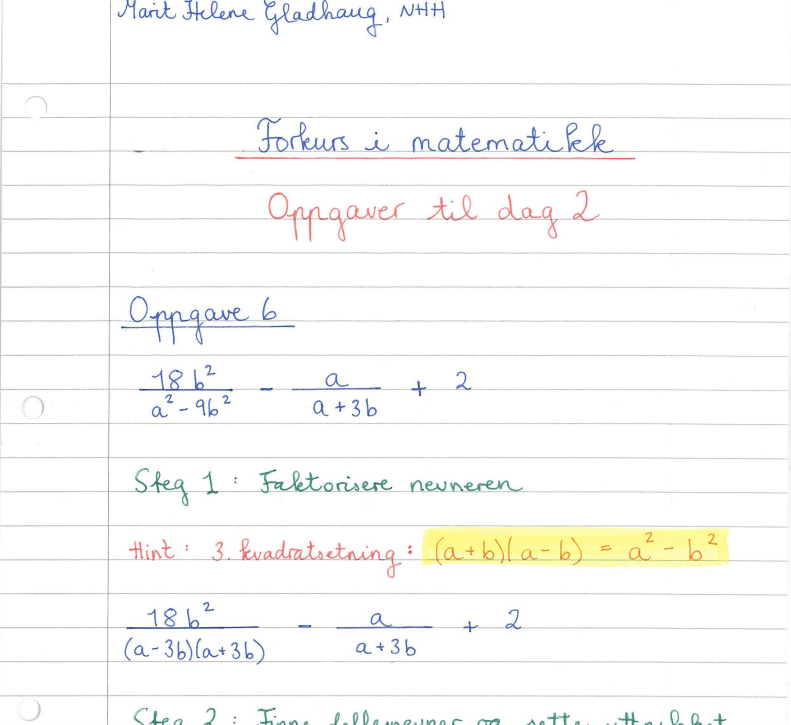 Marit Helene Gladhaug, NHH
Forkurs i matematikk
Oppgaver til dag 2
Oppgave 6
18b²/(a² - 9b²) - a/(a + 3b) + 2
Steg 1 : Faktorisere nevneren
Hint : 3. kvadratsetning : (a + b)(a - b) = a² - b²
18b²/((a - 3b)(a + 3b)) - a/(a + 3b) + 2
Steg 2 : Finne fellesnevner og sette